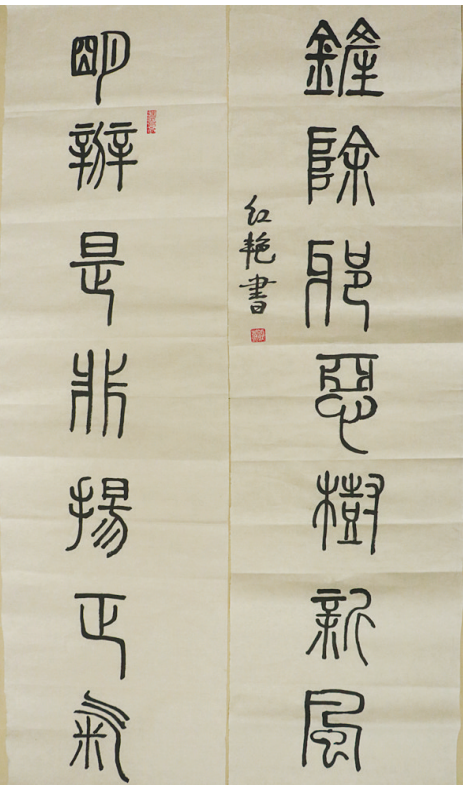 鏟除邪惡樹新風
红艳書
明辨是非揚正氣